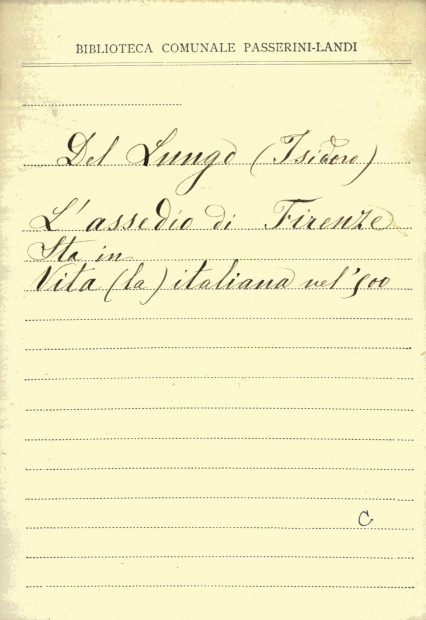 BIBLIOTECA COMUNALE PASSERINI-LANDI
Del Lungo (Isidoro)
L'assedio di Firenze
Sta in
Vita (la) italiana nel '500
C